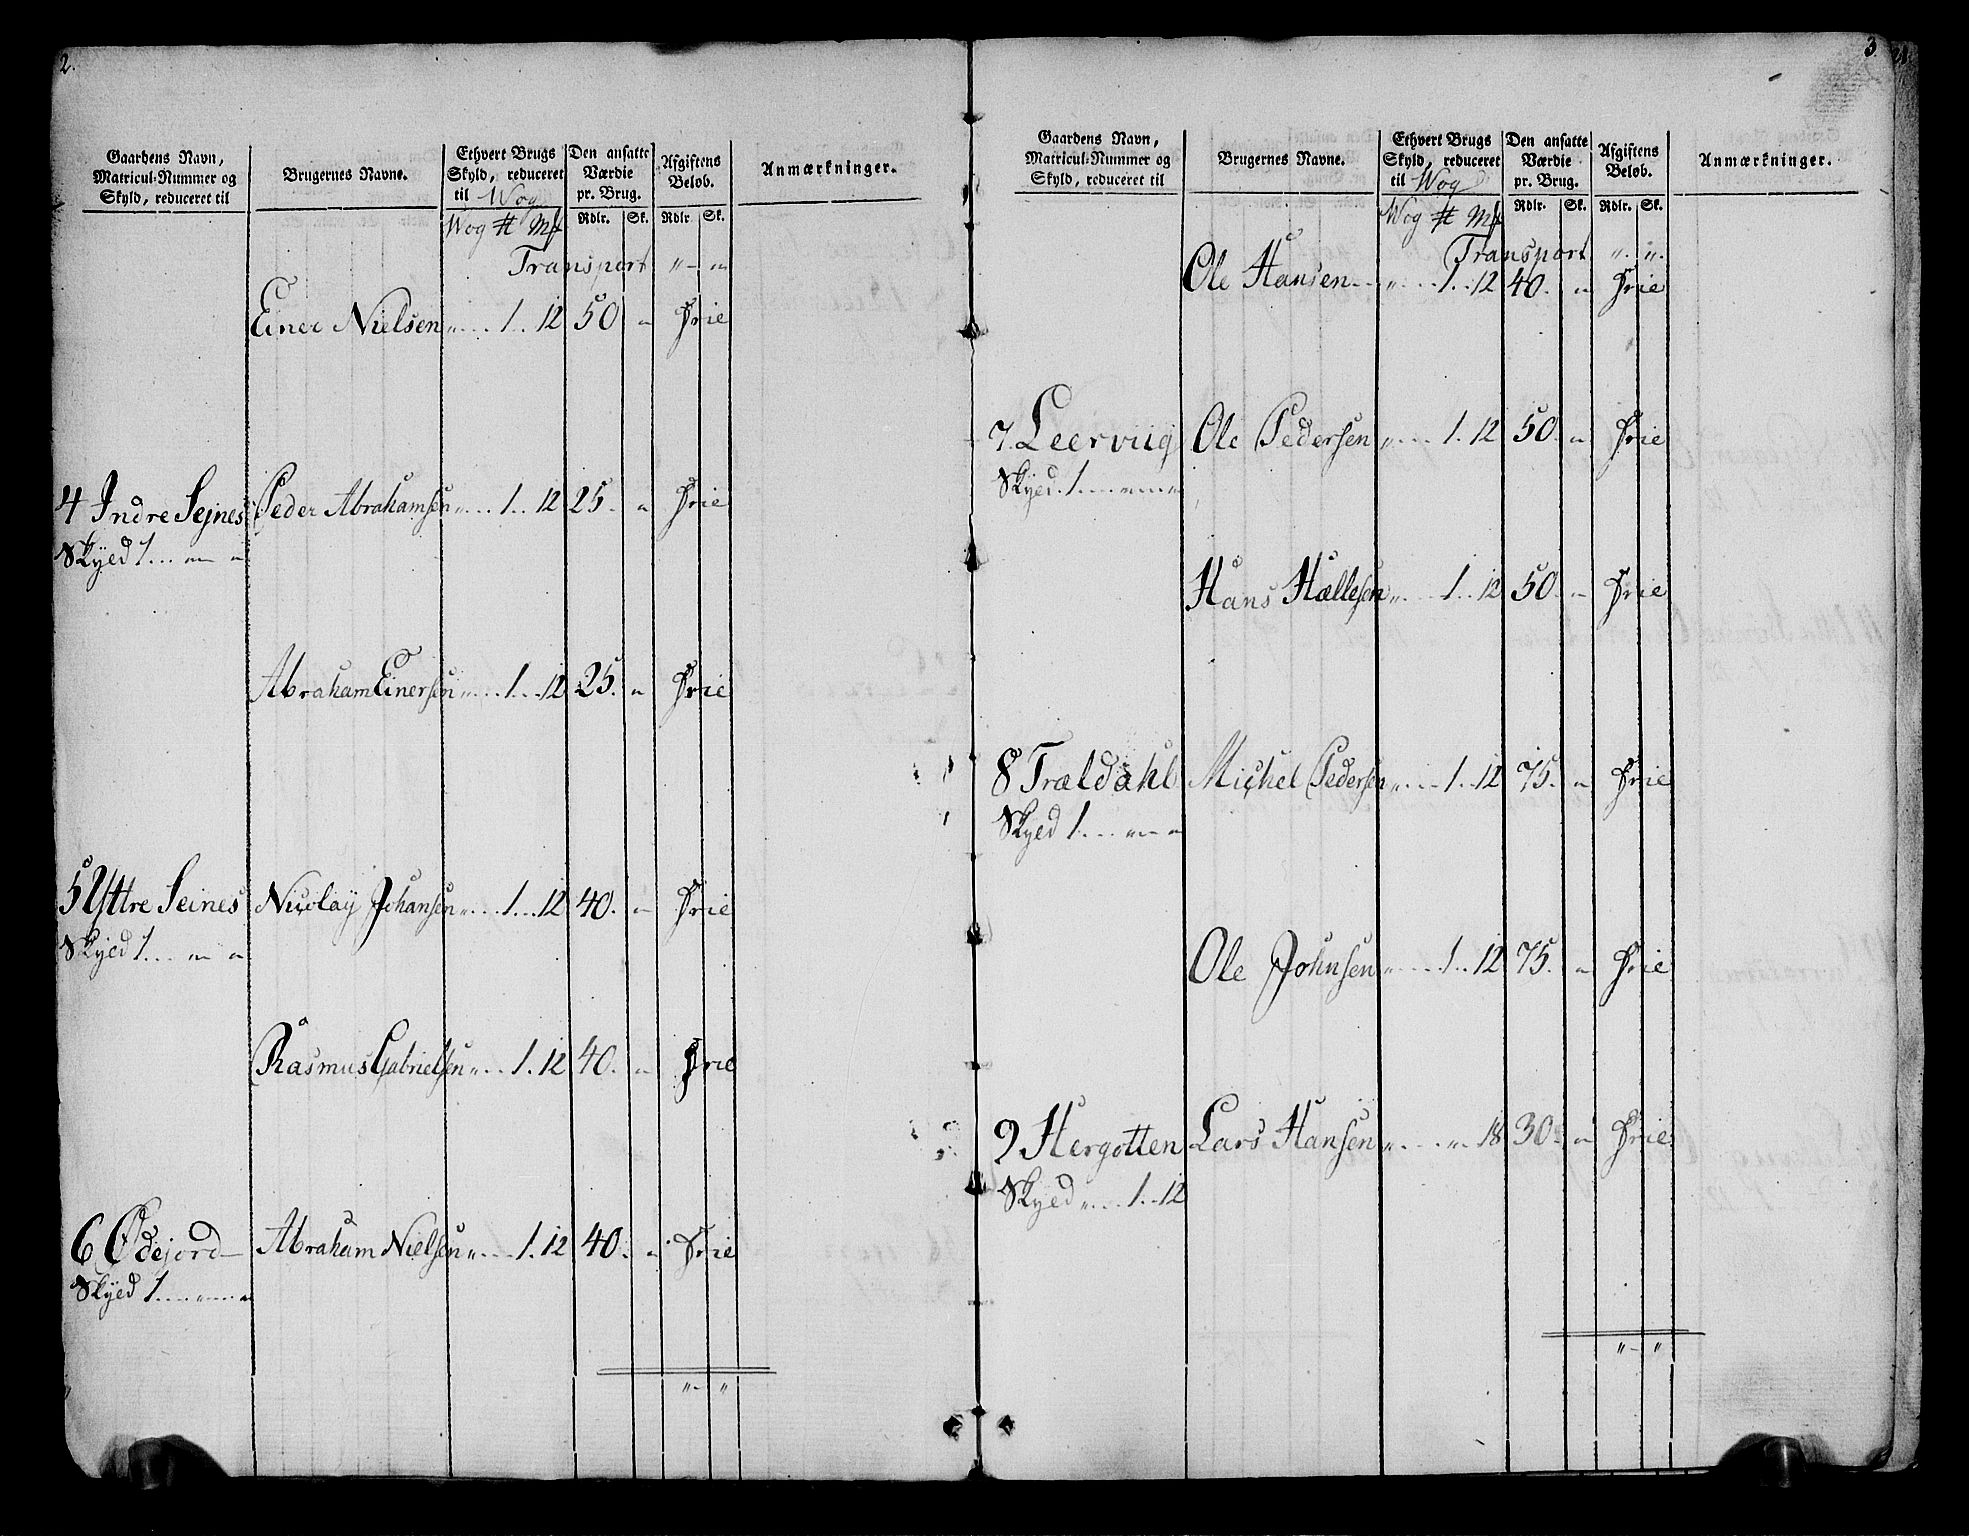 2.
Gaardens Navn, Matricul-Nummer og Skyld, reduceret til
Brugernes Navne.
Ethvert Brugs Skyld, reduceret til Wog
Den ansatte Værdie pr. Brug.
Afgiftens Beløb.
Anmærkninger.
Wog ℔ Mk Rdlr. Sk. Rdlr. Sk.
Transport „ – „
Einer Nielsen „ .... 1 .. 12 50 „ Frie
4 Indre Sejnes Peder Abrahamsen „ .... 1 .. 12 25. „ Frie
Skyed 1 ... „ – „
Abraham Einersen „ .... 1 ... 12 25. „ Frie
5 Yttre Seines Nicolay Johansen „ .... 1 ... 12 40. „ Frie
Skyed 1 ... „ „
Rasmus Gabrielsen „ ... 1. 12 40. „ Frie
6 Ødejord – Abraham Nielsen „ .... 1. 12 40. „ Frie
Skyed 1 .... „ .... „
„ – „
3
Gaardens Navn, Matricul-Nummer og Skyld, reduceret til
Brugernes Navne.
Ethvert Brugs Skyld, reduceret til Wog
Den ansatte Værdie pr. Brug.
Afgiftens Beløb.
Anmærkninger.
Wog ℔ Mk Rdlr. Sk. Rdlr. Sk.
Transport „. „.
Ole Hansen „ .... 1 .. 12 40. „ Frie
7. Leerviig Ole Pedersen „ .... 1. 12 50. „ Frie
Skyed. 1 .... „ – „
Hans Hællesen „ .... 1 .. 12 50. „ Frie
8 Træidahl Michel Pedersen „ .... 1 .. 12 75. „ Frie
Skyed 1 .... „ – „
Ole Johnsen „ .... 1 .. 12 75. „ Frie
9 Hergotten Lars Hansen „ .... „ . 18 30. „ Frie
Skyed „ .... 1 .. 12
„ – „